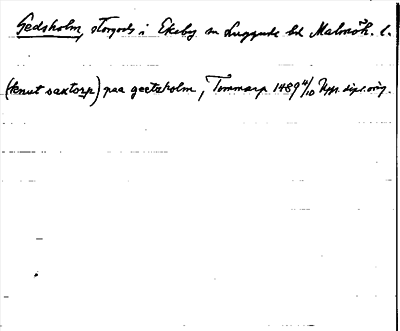 Gedsholm, storgods i Ekeby sn Luggude hd Malmöh. l.
(knut saxtorp) paa geetzholm, Tommarp 1489 4/10 dipl. orig.